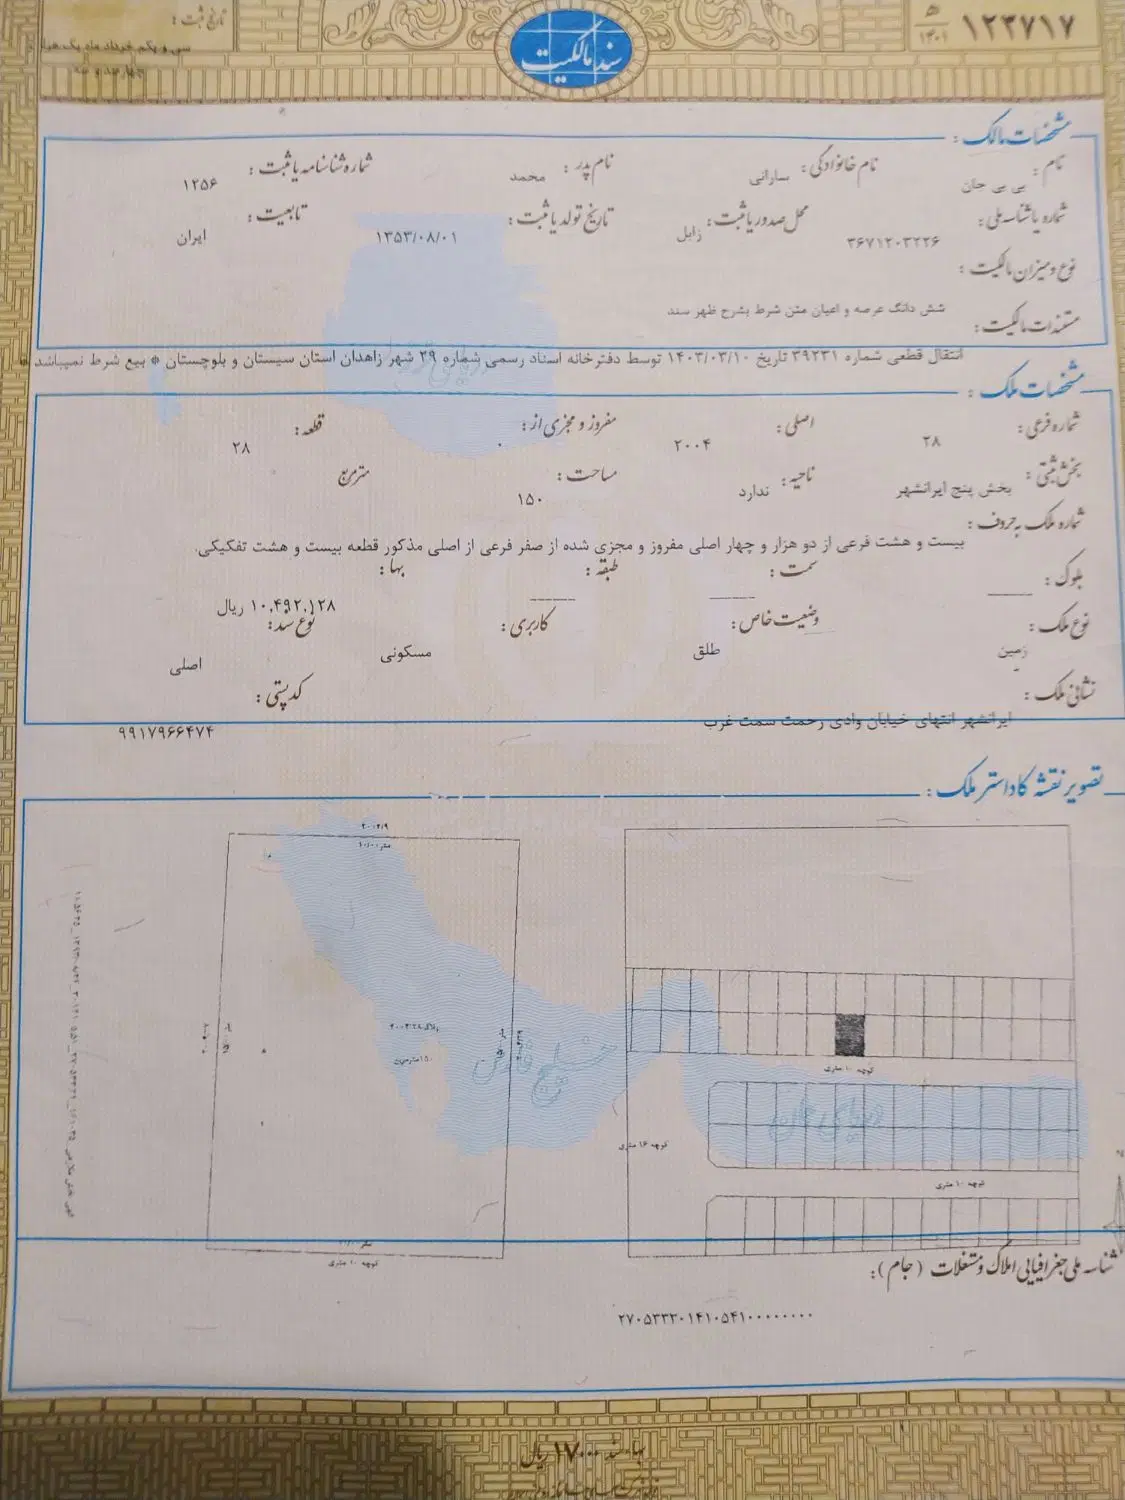 تاریخ ثبت :
سی و یکم خرداد ماه یک هزار
چهارصد و سه
سند مالکیت
۵
۱۴۰۱
۱۲۳۷۱۷
مشخصات مالک :
نام : بی بی جان نام خانوادگی : سارانی نام پدر : محمد شماره شناسنامه یا ثبت : ۱۲۵۶
شماره یا شناسه ملی : ۳۶۷۱۲۰۳۲۲۶ محل صدور یا ثبت : زابل تاریخ تولد یا ثبت : ۱۳۵۳/۰۸/۰۱ تابعیت : ایران
نوع و میزان مالکیت :
شش دانگ عرصه و اعیان متن شرط بشرح ظهر سند
مستندات مالکیت :
انتقال قطعی شماره ۳۹۲۳۱ تاریخ ۱۴۰۳/۰۳/۱۰ توسط دفترخانه اسناد رسمی شماره ۲۹ شهر زاهدان استان سیستان و بلوچستان * بیع شرط نمیباشد *
مشخصات ملک :
شماره فرعی : ۲۸ اصلی : ۲۰۰۴ مفروز و مجزی از : ۰ قطعه : ۲۸
بخش ثبتی : بخش پنج ایرانشهر ناحیه : ندارد مساحت : ۱۵۰ متر مربع
شماره ملک به حروف :
بیست و هشت فرعی از دو هزار و چهار اصلی مفروز و مجزی شده از صفر فرعی از اصلی مذکور قطعه بیست و هشت تفکیکی.
بلوک : سمت : طبقه : بها : ۱۰,۴۹۲,۱۲۸ ریال
نوع ملک : زمین وضعیت خاص : طلق کاربری : مسکونی نوع سند : اصلی
نشانی ملک : ایرانشهر انتهای خیابان وادی رحمت سمت غرب کد پستی : ۹۹۱۷۹۶۶۴۷۴
تصویر نقشه کاداستر ملک :
خلیج فارس
دریای عمان
کوچه ۱۰ متری
کوچه ۱۶ متری
کوچه ۱۰ متری
کوچه ۱۰ متری
شناسه ملی جغرافیایی املاک و مستغلات ( جام ) :
۲۷۰۵۳۳۳۰۱۴۱۰۵۴۱۰۰۰۰۰۰۰۰
بهاء سند ۱۷۰۰۰۰ ریال